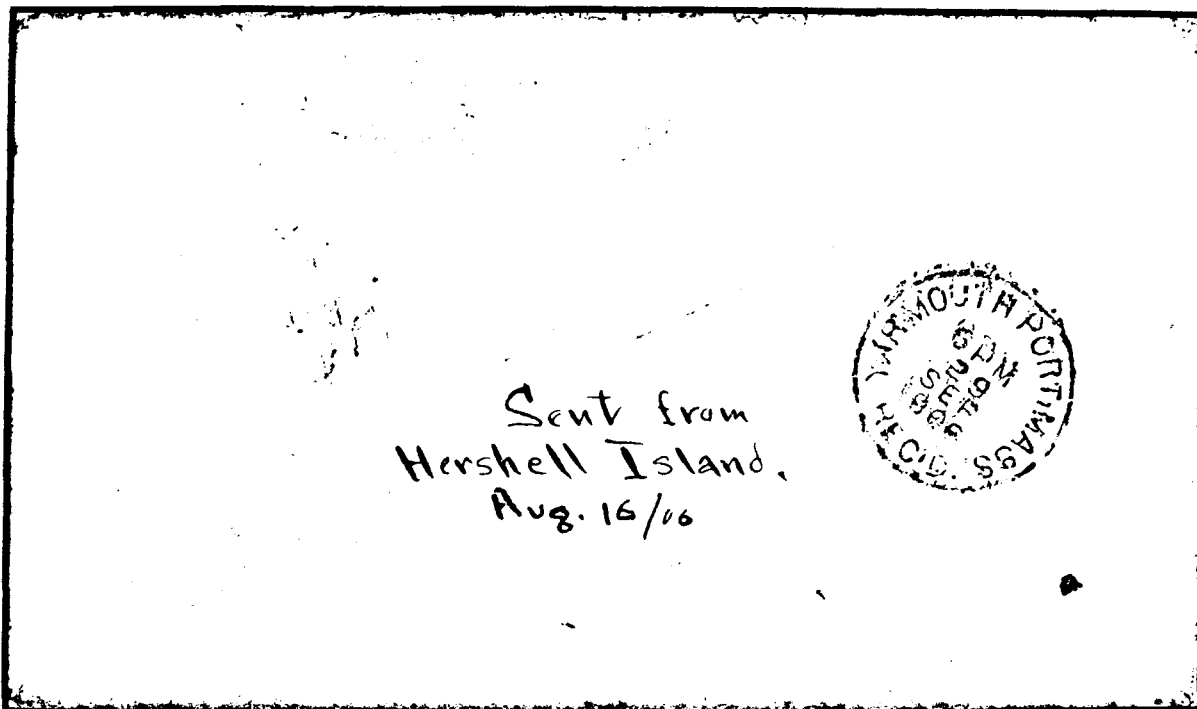 Sent from
Hershell Island.
Aug. 16/06
YARMOUTH PORT, MASS
REC'D.
6 PM